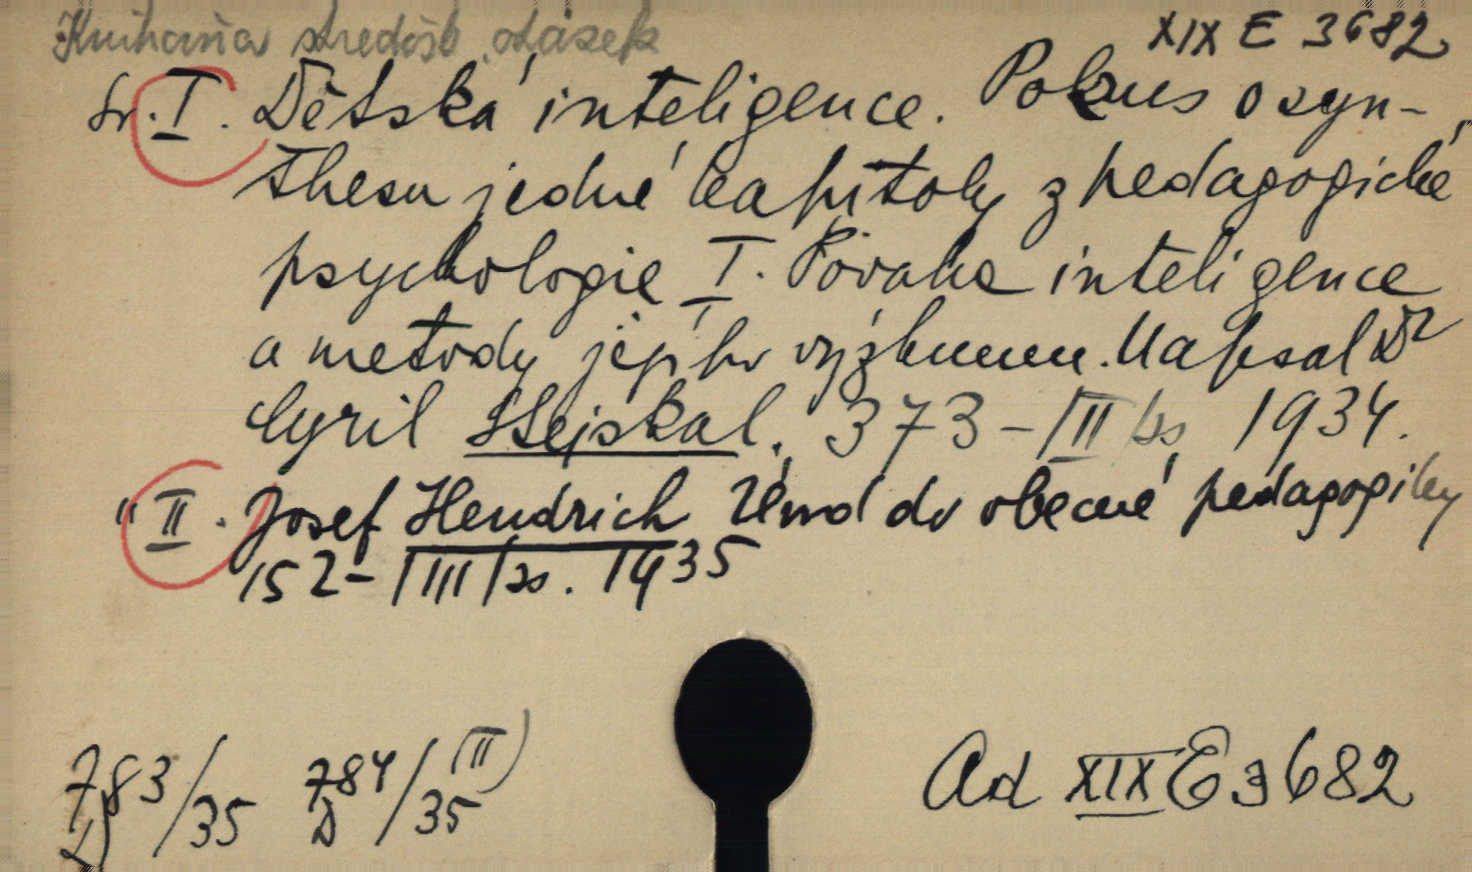 Knihovna středošk. otázek
XIX E 3682
Sv. I. Dětská inteligence. Pokus o syn-
thesu jedné kapitoly z pedagogické
psychologie I. Povaha inteligence
a metody jejího výzkumu. Napsal Dr
Cyril Stejskal. 373-|III|ss 1934.
" II. Josef Hendrich Úvod do obecné pedagogiky
152-|III|ss. 1935
783/35 784/35 (II)
D D
Ad XIX E 3682